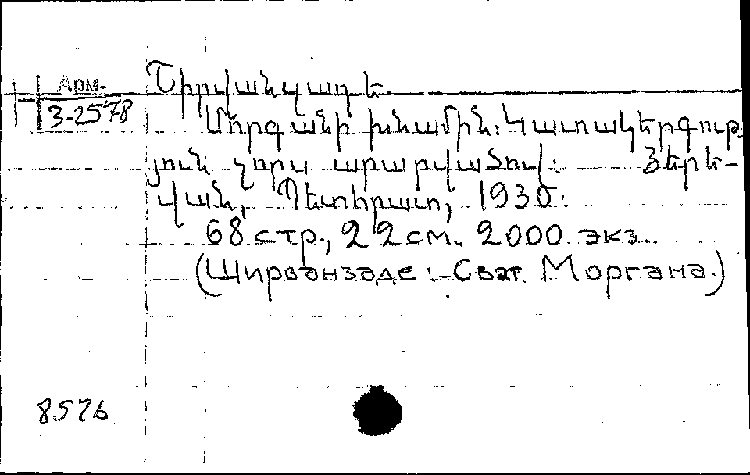 Арм.
3-2578
Շիրվանզադե.
Մորգանի խնամին: Կատակերգութ-
յուն չորս արարվածով: Յերե-
վան, Պետհրատ, 1930:
68 стр., 22 см. 2000 экз.
(Ширванзаде: Сват Моргана.)
8576